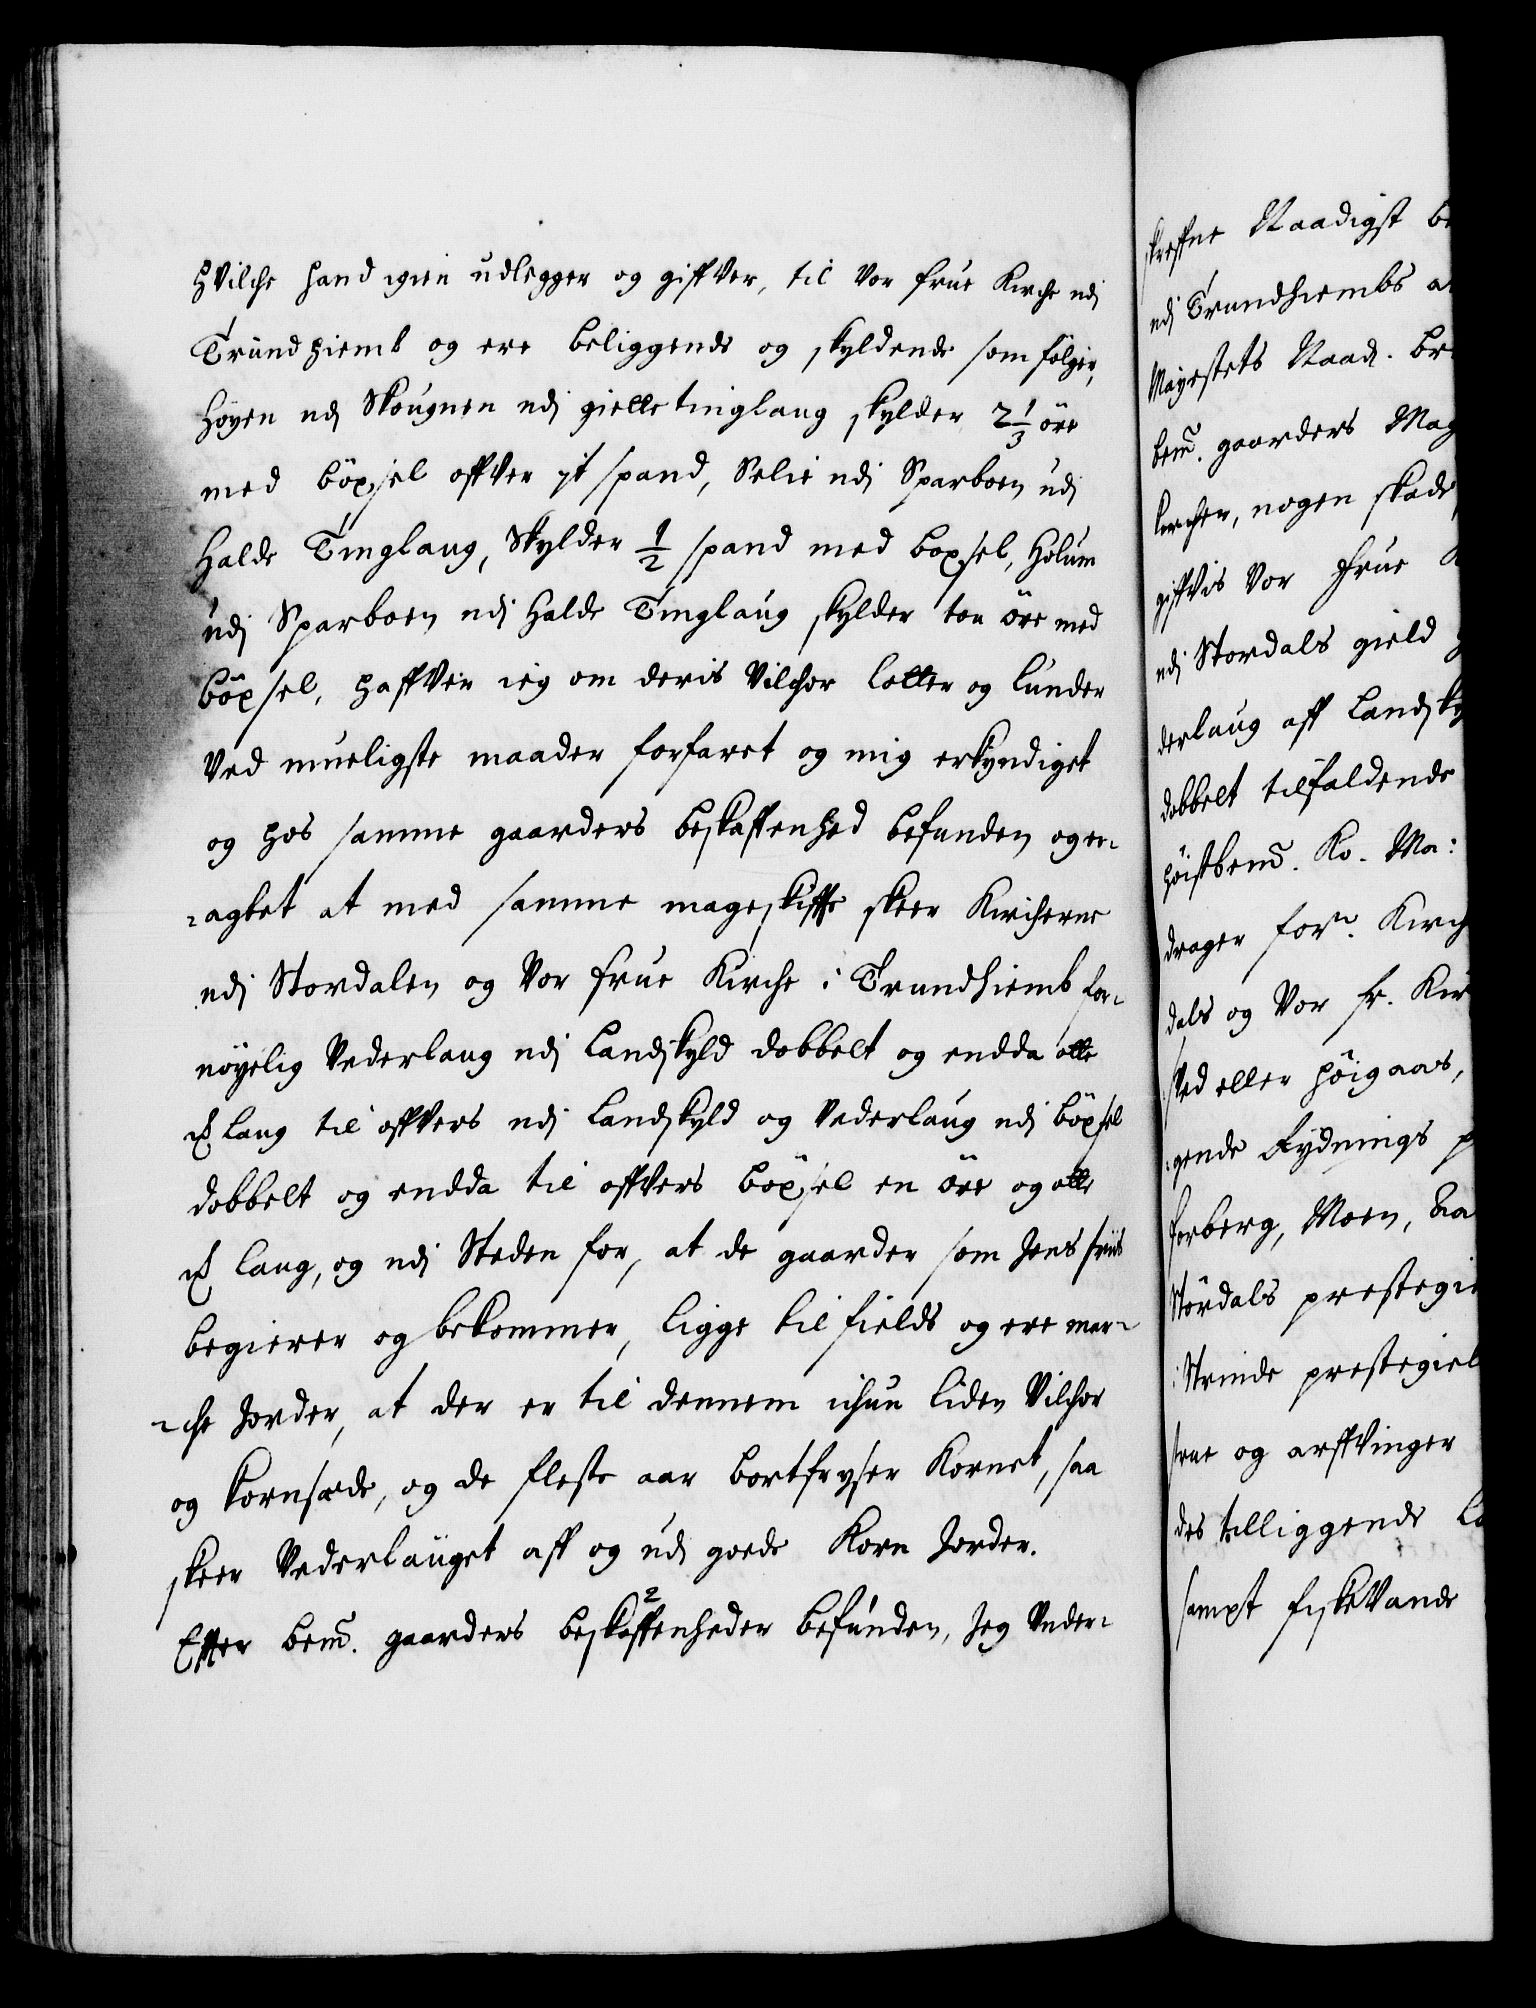 hvilche hand igien udlegger og giffver, til Vor frue Kirche udj
Trundhiemb og ere beliggende og skyldende som følger,
Høyen udj Skougnen udj gielle tinglaug skylder 2 1/3 öre
med böxsel offver jt spand, Selie udj Sparboen udj
Halde Tinglaug, Skylder 1/2 spand med boxsel, Holum
udj Sparboen udj Halde Tinglaug skylder toe öre med
böxsel, haffver ieg om deris Vilchor lotter og lunder
Ved mueligste maader forfaret og mig erkyndiget
og hos samme gaarders beskaffenhed befunden og er-
-agtet at med samme mageskiffte skeer Kircherne
udj Stordalen og Vor frue Kirche i Trundhiemb for-
nöyelig Vederlaug udj Landskyld dobbelt og endda otte
℔ laug til offvers udj Landskyld og Vederlaug udj böxsel
dobbelt og endda til offvers böxsel en öre og otte
℔ laug, og udj Steden for, at de gaarder som Jens friis
begierer og bekommer, ligge til fields og ere mar-
-che Jorder, at der er til dennem ichun liden Vilchor
og kornsæde, og de fleste aar bortfryser Kornet, saa
skeer Vederlauget aff og udj goede Korn Jorder.
Effter bemt. gaarders beskaffenheder befunden, Jeg Under-
skreffne Naadigst be
udj Trundhiembs a
Mayestets Naad. br
bemt. gaarders Mag
kircher, nogen skade
giffvis Vor Frue K
udj Stordals gield
derlaug aff Landsky
dobbelt tilfaldende
höistbemt. Ko. Ma:
drager for. Kirch
dals og Vor fr. Kir
sted eller höigaas,
gende Rydnings p
forberg, Moen,
Stördals prestegie
i Strinde prestegiel
strue og arffvinger
des tilliggende L
sampt fiskevande